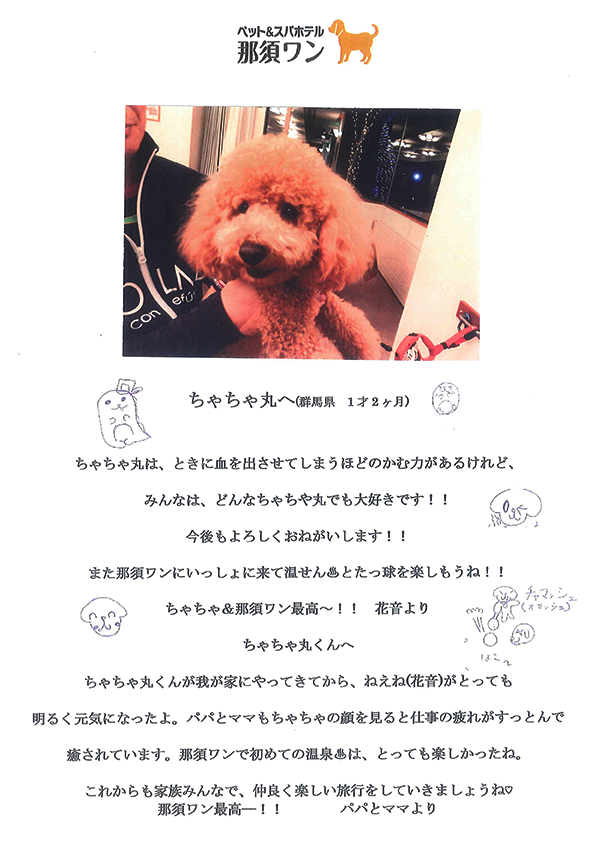 ペット&スパホテル
那須ワン
ちゃちゃ丸へ(群馬県　1才2ヶ月)
ちゃちゃ丸は、ときに血を出させてしまうほどのかむ力があるけれど、
みんなは、どんなちゃちや丸でも大好きです！！
今後もよろしくおねがいします！！
また那須ワンにいっしょに来て温せん♨とたっ球を楽しもうね！！
ちゃちゃ＆那須ワン最高～！！　花音より
チャマッシュ
(スマッシュ)
ちゃちゃ丸くんへ
ちゃちゃ丸くんが我が家にやってきてから、ねえね(花音)がとっても
明るく元気になったよ。パパとママもちゃちゃの顔を見ると仕事の疲れがすっとんで
癒されています。那須ワンで初めての温泉♨は、とっても楽しかったね。
これからも家族みんなで、仲良く楽しい旅行をしていきましょうね♡
那須ワン最高―！！　パパとママより